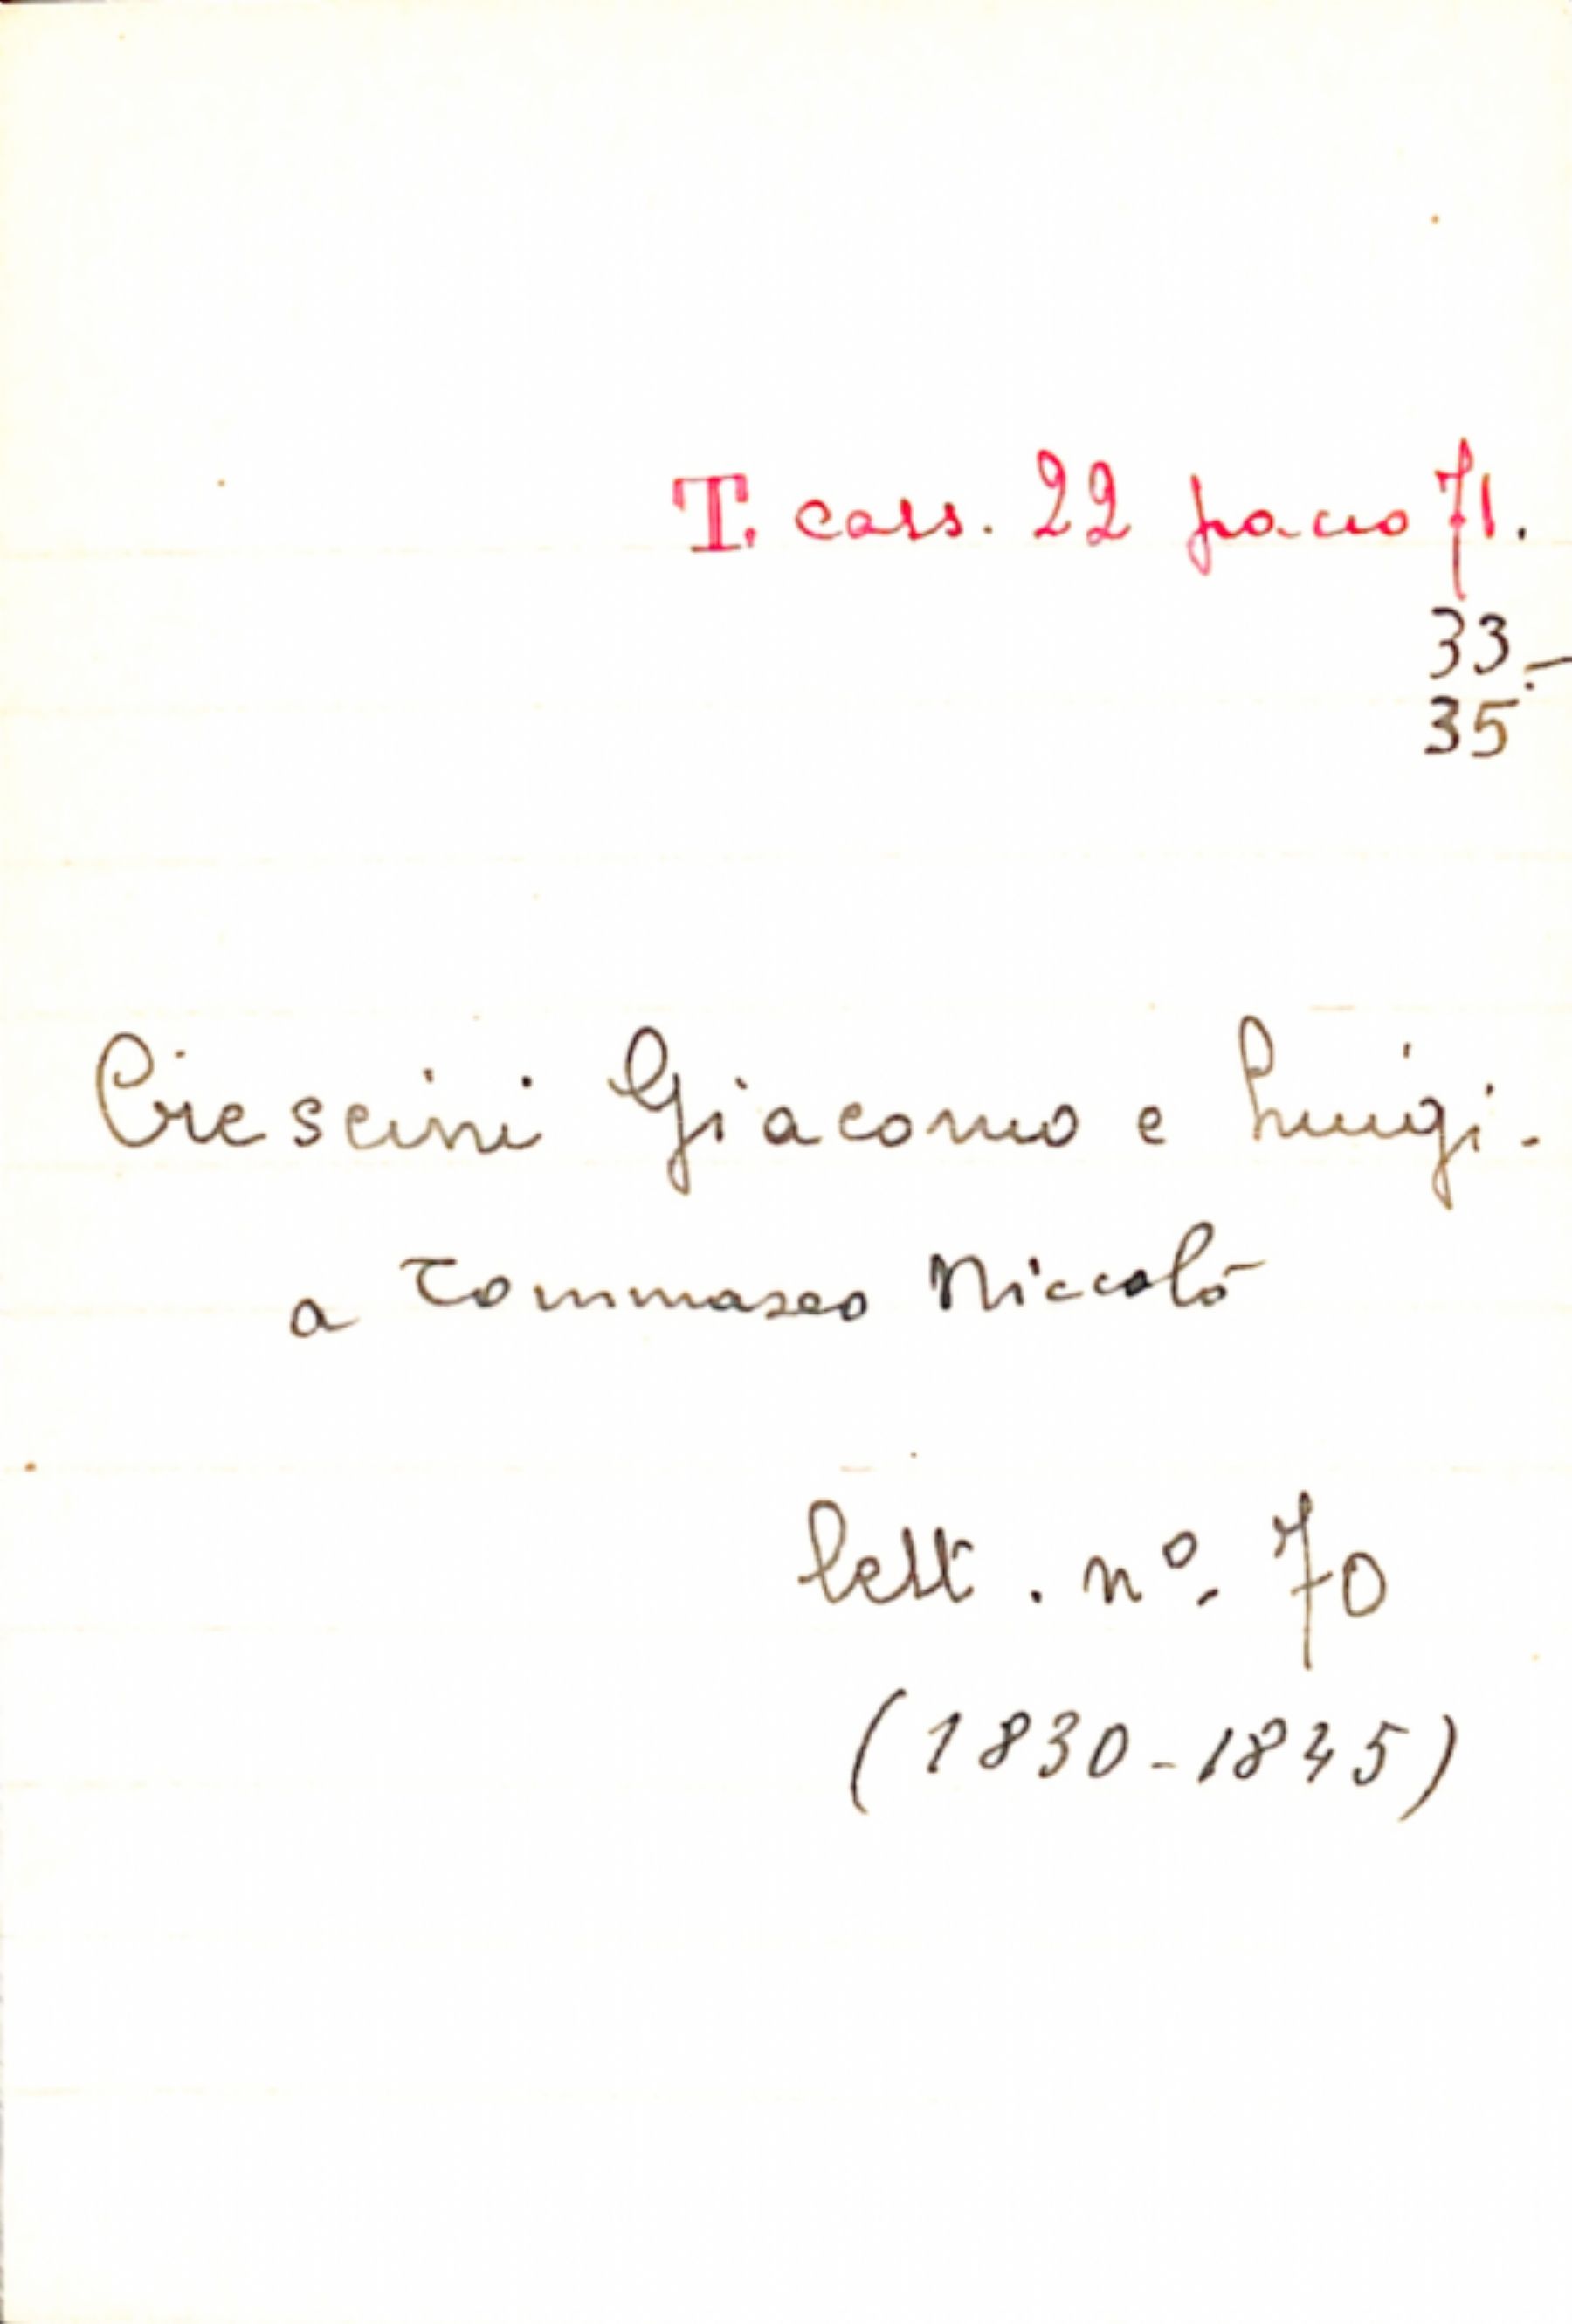 T. cass. 22 pacco 71.
33.-
35
Crescini Giacomo e Luigi.
a Tommaseo Niccolò
lett. nº. 70
(1830-1845)